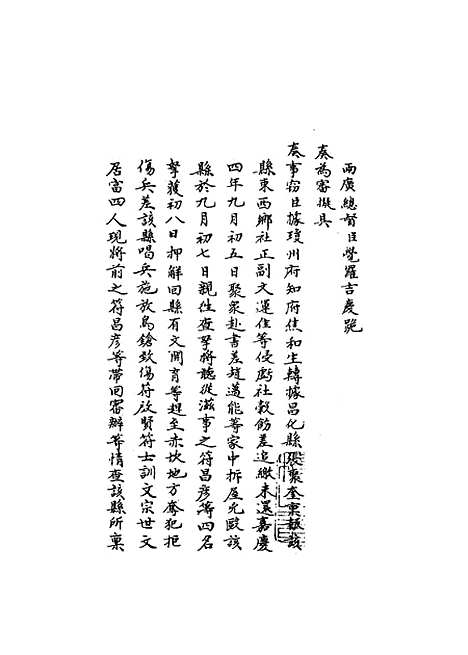 兩廣總督臣覺羅吉慶跪
奏為審擬具
奏事竊臣據瓊州府知府焦和生轉據昌化縣張聚奎稟報該
縣東西鄉社正副文運住等侵虧社穀飭差追繳未還嘉慶
四年九月初五日聚眾赴書差趙邁能等家中拆屋兇毆該
縣於九月初七日親往查拏將聽從滋事之符昌彥等四名
拏獲初八日押解回縣有文開育等趕至赤坎地方奪犯拒
傷兵差該縣喝兵施放鳥鎗致傷符啟賢符士訓文宗世文
居富四人現將前之符昌彥等帶回審辦等情查該縣所稟